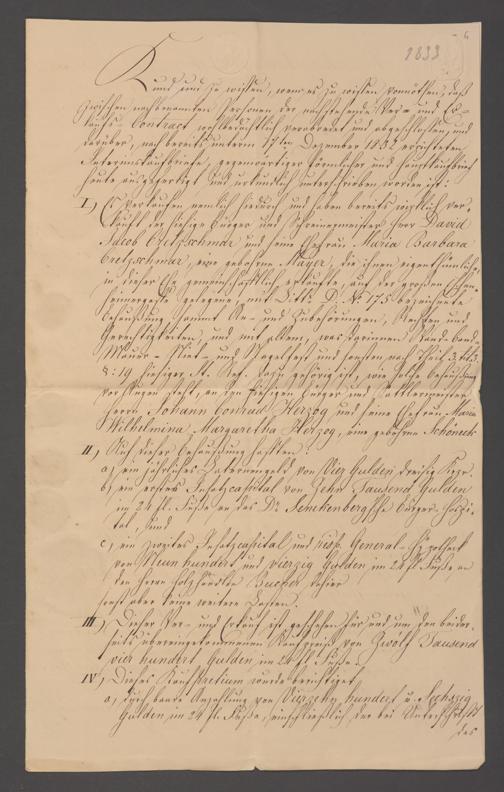 1833
Kund und zu wissen, wem es zu wissen vonnöthen, daß
zwischen nachbenannten Personen der nachstehende Ver- und Er-
kaufs-Contract wohlbedächtlich verabredet und abgeschlossen, und
darüber, nach bereits unterm 17ten Dezember 1832 errichteten
Interimskaufbriefe, gegenwärtiger förmlicher und Hauptkaufbrief
heute ausgefertigt und urkundlich unterschrieben worden ist:
I.) Es verkaufen nemlich hiedurch und haben bereits wirklich ver-
kauft der hiesige Bürger und Schreinermeister Herr David
Jacob Cretzschmar und seine Ehefrau Maria Barbara
Cretzschmar, eine gebohrne Mayer, die ihnen eigenthümliche,
in dieser Ehe gemeinschaftlich erkaufte, auf der großen Eschen-
heimergasse gelegene, mit Litt: D. No 175 bezeichnete
Behausung, sammt An- und Zubehörungen, Rechten und
Gerechtigkeiten, und mit allem, was darinnen Wand- band-
Mauer- Niet- und Nagelfest und sonsten nach Theil 3. tit. 3.
§: 19 hiesiger St. Ref. dazu gehörig ist, wie solche Behausung
vor Augen steht, an den hiesigen Bürger und Sattlermeister
Herrn Johann Conrad Herzog und seine Ehefrau Maria
Wilhelmina Margaretha Herzog, eine gebohrne Schöneck.
II.) Auf dieser Behausung haften:
a) ein jährliches Laternengeld von Vier Gulden dreisig Kreuzr.
b) ein erstes Insatzcapital von Zehn Tausend Gulden
im 24 fl. Fuße an das Dr. Senckenbergsche Bürger-Hospi-
tal, und
c) ein zweites Insatzcapital und resp. General-Hypothek
von Neun hundert und vierzig Gulden im 24 fl. Fuße an
den Herrn Holzhändler Bucher dahier
sonst aber keine weitere Lasten.
III.) Dieser Ver- und Erkauf ist geschehen für und um den beider-
seits übereingekommenen Kaufpreiß von Zwölf Tausend
vier hundert Gulden im 24 fl. Fuße.
IV.) Dieses Kaufpretium wurde berichtiget
a) durch baare Anzahlung von Vierzehn hundert u. Sechszig
Gulden im 24 fl. Fuße, einschließlich der bei Unterschrift
des